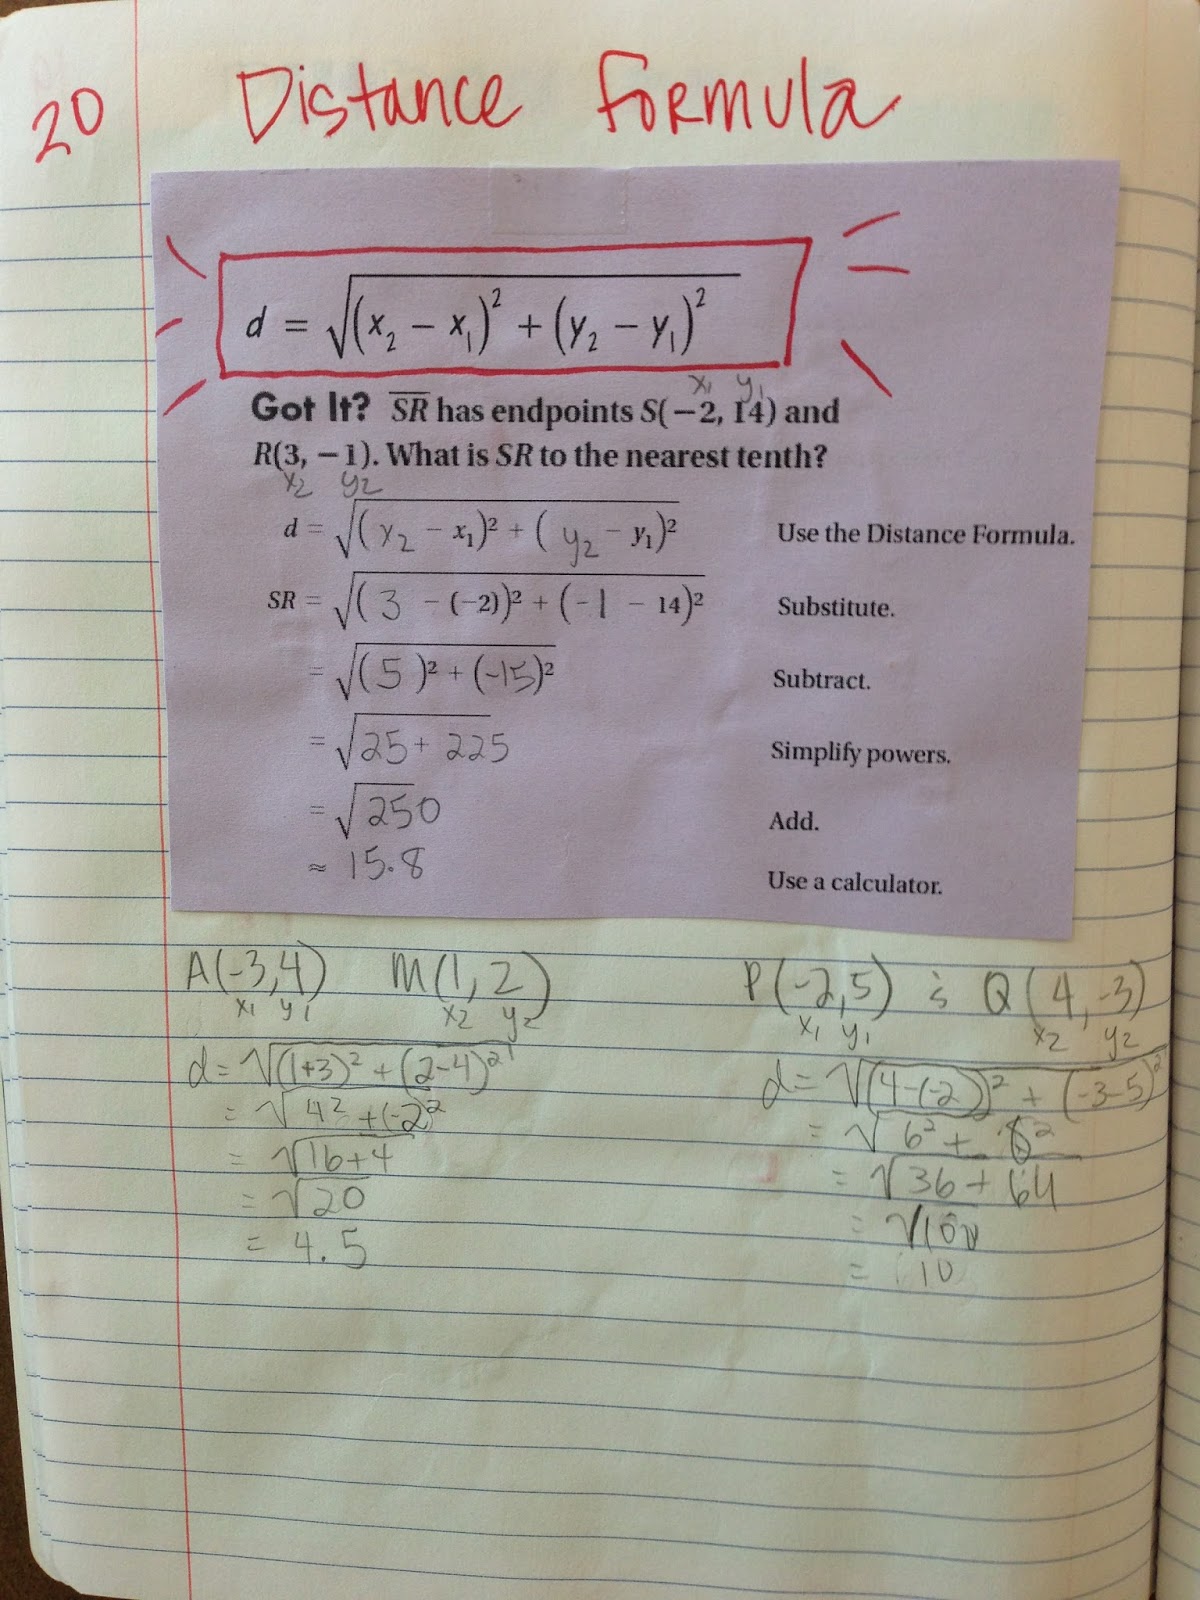 20
Distance Formula
d = √(x₂ − x₁)² + (y₂ − y₁)²
x₁ y₁
Got It? SR has endpoints S(−2, 14) and
R(3, −1). What is SR to the nearest tenth?
x₂ y₂
d = √(x₂ − x₁)² + (y₂ − y₁)² Use the Distance Formula.
SR = √(3 − (−2))² + (-1 − 14)² Substitute.
= √(5)² + (-15)² Subtract.
= √25 + 225 Simplify powers.
= √250 Add.
≈ 15.8 Use a calculator.
A(-3,4) M(1,2)
x₁ y₁ x₂ y₂
d = √(1+3)² + (2-4)²
= √4² + (-2)²
= √16+4
= √20
= 4.5
P(-2,5) & Q(4,-3)
x₁ y₁ x₂ y₂
d = √(4-(-2))² + (-3-5)²
= √6² + 8²
= √36 + 64
= √100
= 10